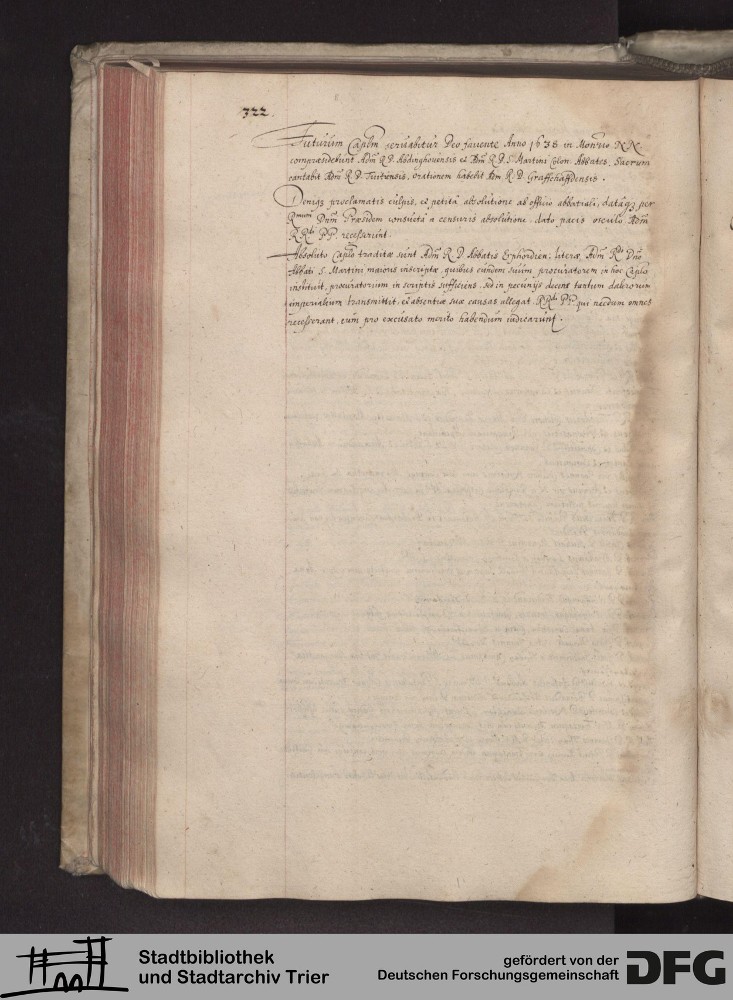 722.
Futurum Caplm servabitur Deo favente Anno 1638 in Monrio N.N.
compraesidebunt Adm R.D. Abdinghovensis et Adm R.D. S. Martini Colon. Abbates. Sacrum
cantabit Adm R.D. Tuitiensis, orationem habebit Adm R.D. Graffschaffdensis.
Deniq3 proclamatis culpis, et petita absolutione ab officio abbatiali, dataq3 per
Rmum Dnm Praesidem consueta a censuris absolutione, dato pacis osculo Adm
RRdi PP. recesserunt.
Absoluto Caplo traditae sunt Adm R.D. Abbatis Erphordien. literae, Adm Rdo Dno
Abbati S. Martini maioris inscriptae, quibus eundem suum procuratorem in hoc Caplo
instituit, procuratorium in scriptis sufficiens, sed in pecunijs decem tantum dalerorum
imperialium transmittit, et absentiae suae causas allegat. RRdi PP. qui necdum omnes
recesserant, eum pro excusato merito habendum iudicarunt.
Stadtbibliothek
und Stadtarchiv Trier
gefördert von der
Deutschen Forschungsgemeinschaft
DFG